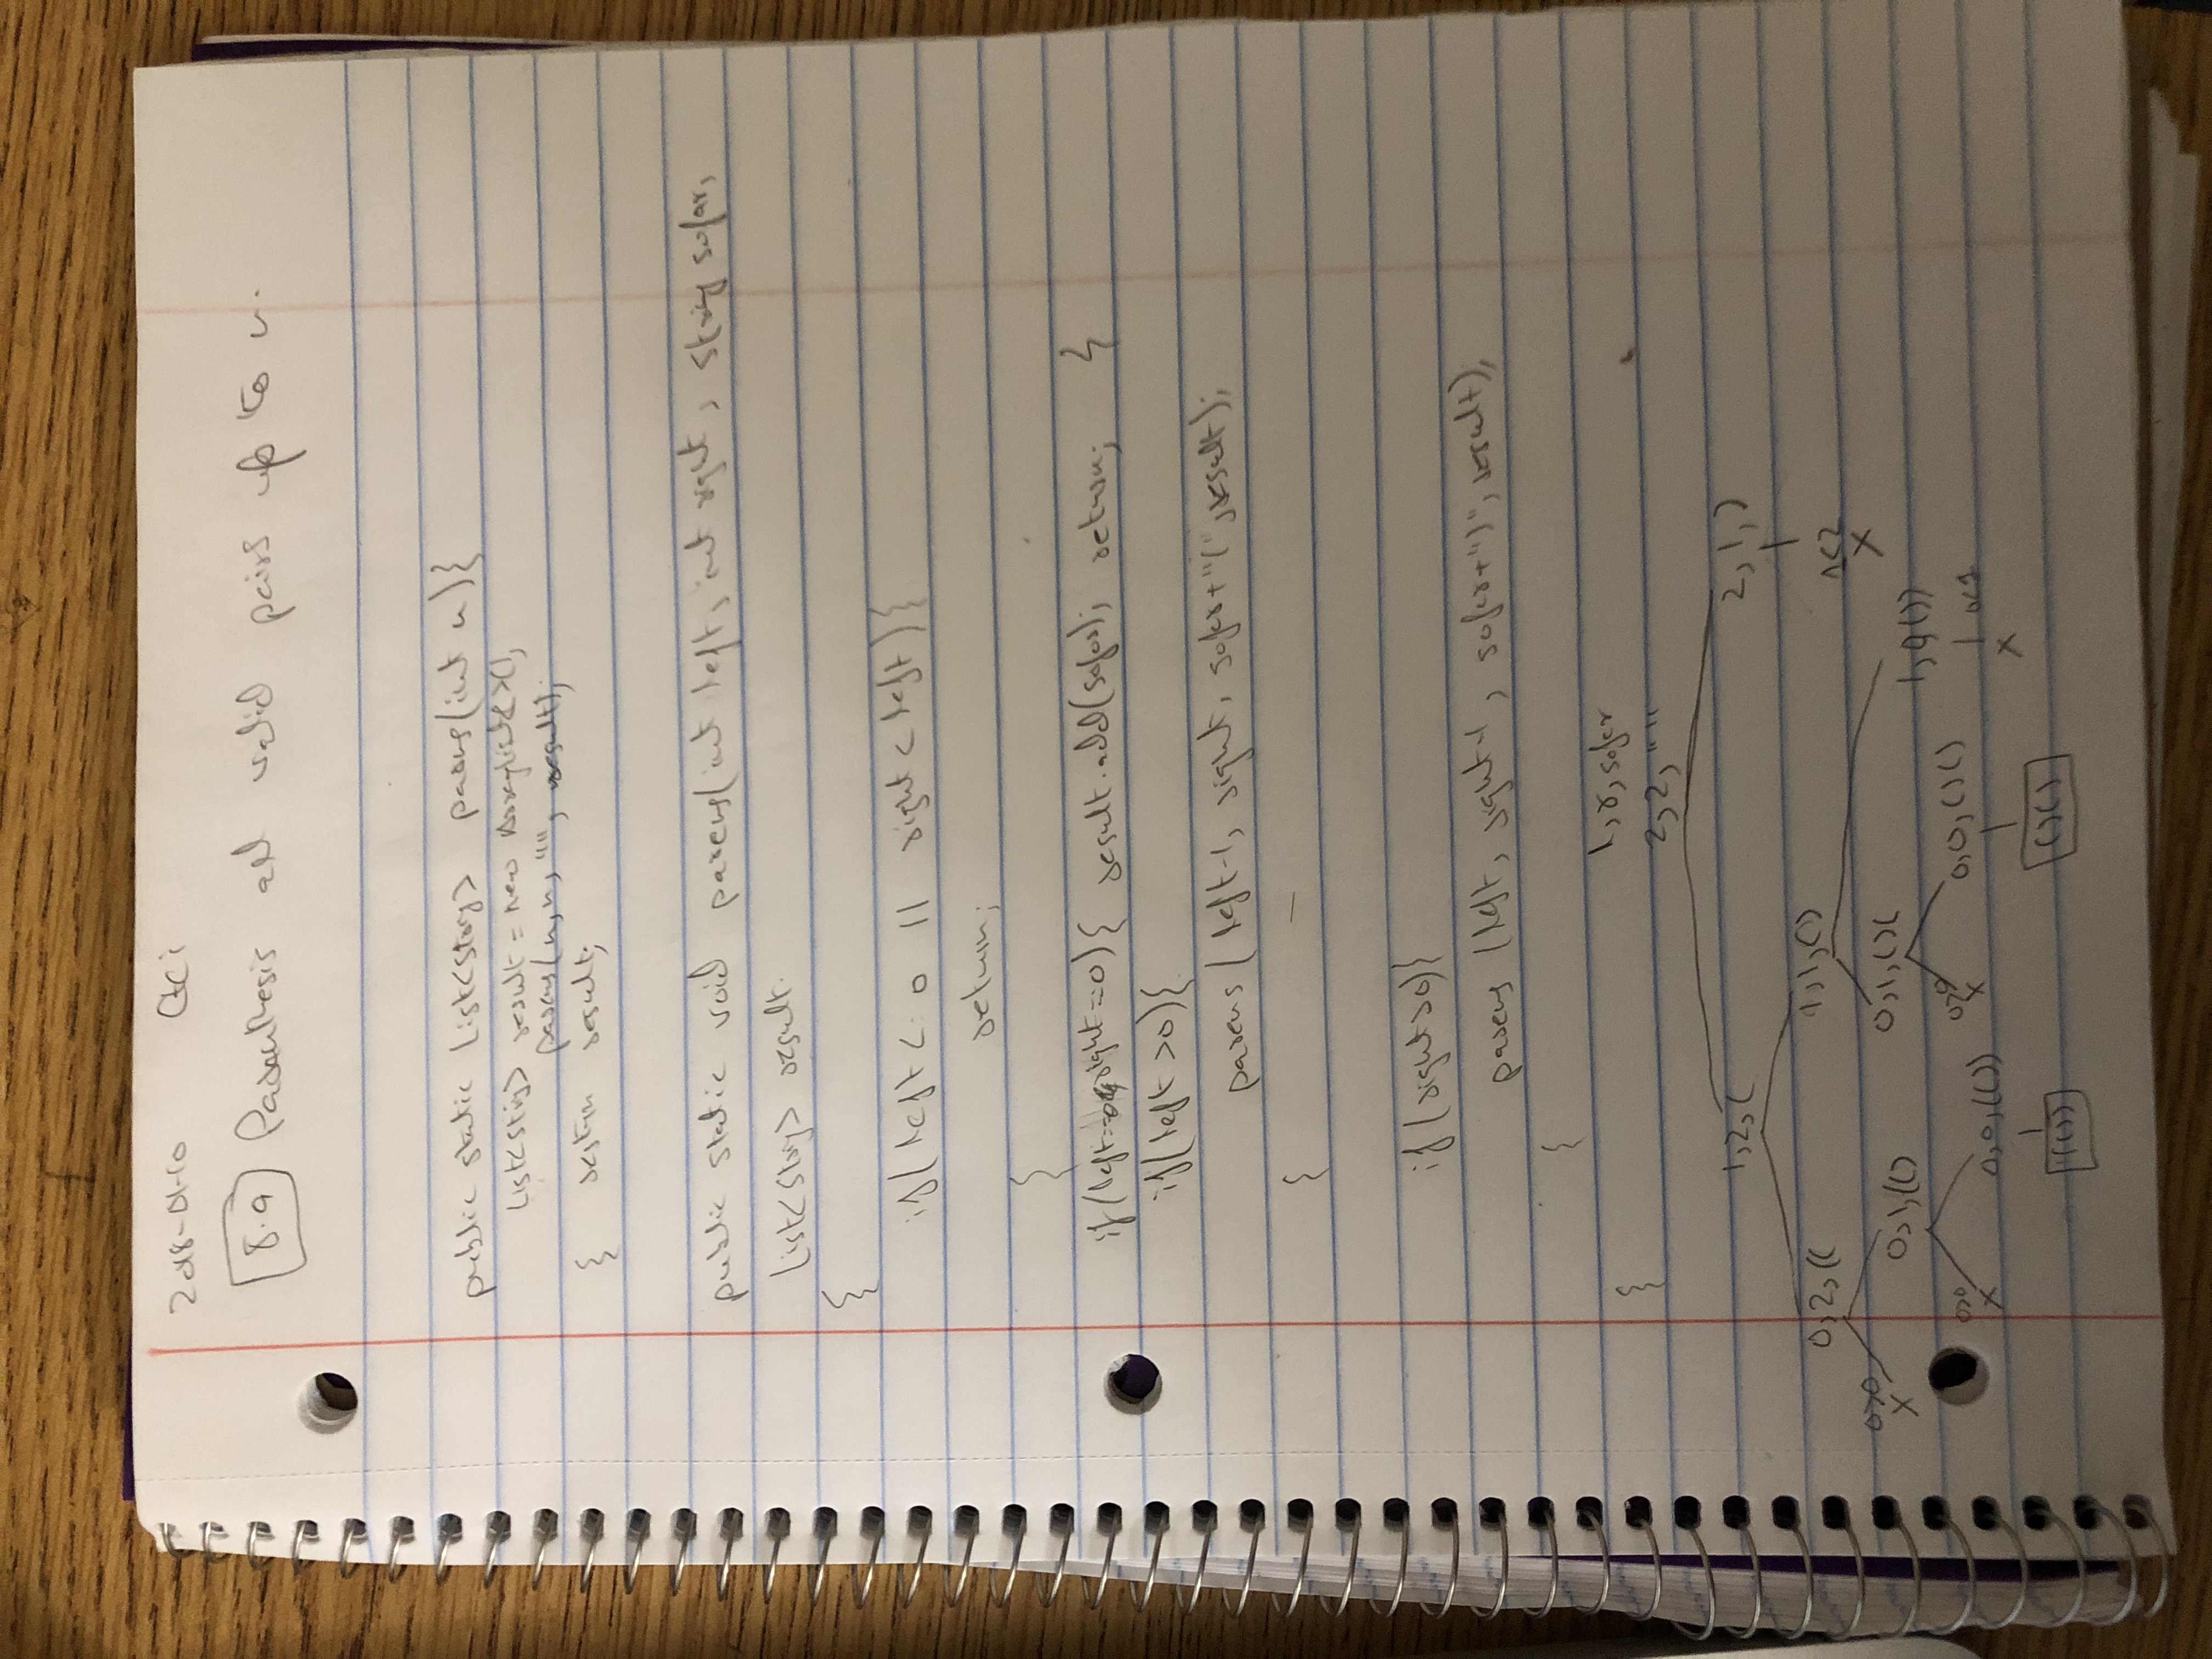 2018-01-10 CtCi
8.9 Parenthesis all valid pairs up to n.
public static List<String> parens(int n){
List<String> result = new ArrayList<>();
parens(n,n, "", result);
} return result;
public static void parens(int left, int right, String sofar,
List<String> result.
{
if(left < 0 || right < left){
return;
}
if(left==0 && right==0){ result.add(sofar); return; }
if(left >0){
parens(left-1, right, sofar+"(", result);
}
if(right>0){
parens(left, right-1, sofar+")", result);
}
}
l,r,sofar
2,2, ""
1,2,( 2,1,)
0,2,(( 1,1,() 1<2
X
0>0
X
0,1,(() 0,1,()( 1,0,())
0>0
X
0,0,(()) 0>0
X
0,0,()() 0<1
X
(()) ()()